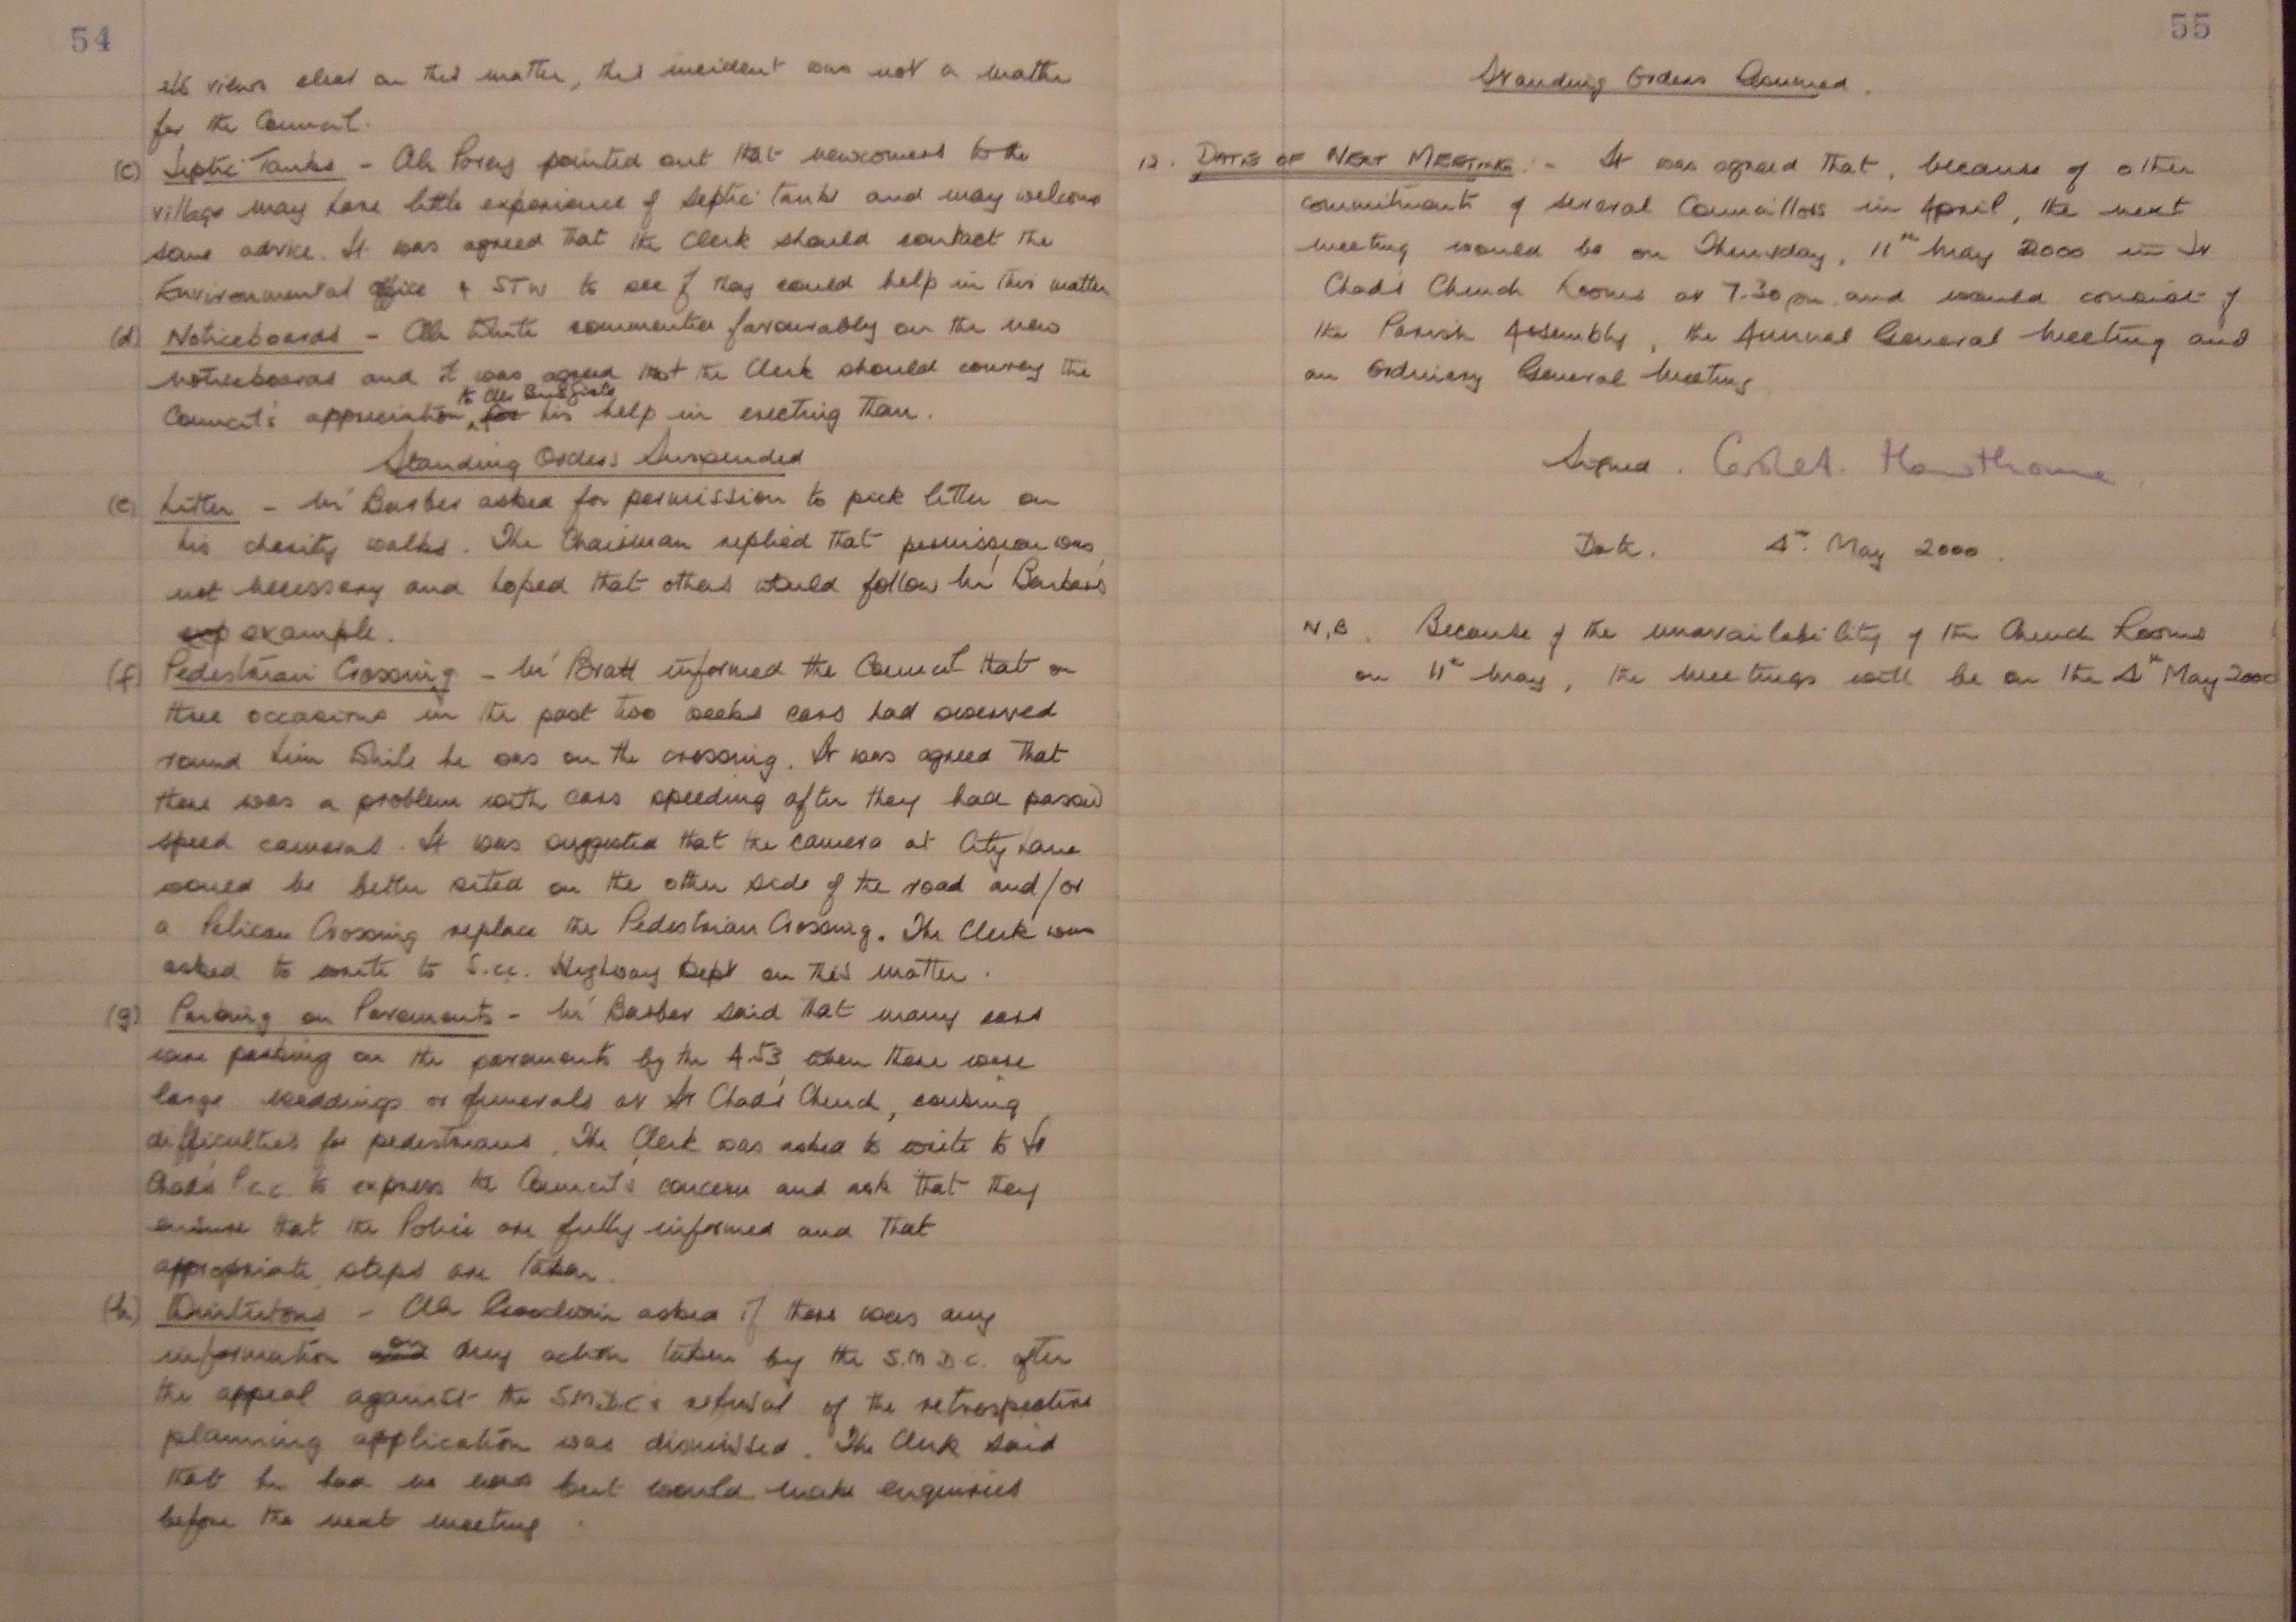 54
its views clear on this matter, this incident was not a matter
for the Council.
(c) Septic Tanks - Cllr Povey pointed out that newcomers to the
village may have little experience of septic tanks and may welcome
some advice. It was agreed that the Clerk should contact the
Environmental office & STW to see if they could help in this matter
(d) Noticeboards - Cllr White commented favourably on the new
noticeboards and it was agreed that the Clerk should convey the
to Cllr
Council's appreciation for his help in erecting them.
Standing Orders Suspended
(e) Litter - Mr Barber asked for permission to pick litter on
his charity walks. The Chairman replied that permission was
not necessary and hoped that others would follow Mr Barber's
exp example.
(f) Pedestrian Crossing - Mr Bratt informed the Council that on
three occasions in the past two weeks cars had swerved
round him while he was on the crossing. It was agreed that
there was a problem with cars speeding after they had passed
speed cameras. It was suggested that the camera at City Lane
would be better sited on the other side of the road and/or
a Pelican Crossing replace the Pedestrian Crossing. The Clerk was
asked to write to S.C.C. Highway Dept on this matter.
(g) Parking on Pavements - Mr Barber said that many cars
were parking on the pavements by the A.53 when there were
large weddings or funerals at St Chad's Church, causing
difficulties for pedestrians. The Clerk was asked to write to St
Chad's P.C.C. to express the Council's concern and ask that they
ensure that the Police are fully informed and that
appropriate steps are taken.
(h) - Cllr Goodwin asked if there was any
information on any action taken by the S.M.D.C. after
the appeal against the S.M.D.C's refusal of the retrospective
planning application was dismissed. The Clerk said
that he had no news but would make enquiries
before the next meeting.
55
Standing Orders Resumed.
12. DATE OF NEXT MEETING :- It was agreed that, because of other
commitments of several Councillors in April, the next
meeting would be on Thursday, 11th May 2000 in St
Chad's Church Rooms at 7.30 pm and would consist of
the Parish Assembly, the Annual General Meeting and
an Ordinary General Meeting.
Signed. Hawthorne
Date. 4th May 2000.
N.B. Because of the unavailability of the Church Rooms
on 11th May, the meetings will be on the 4th May 2000